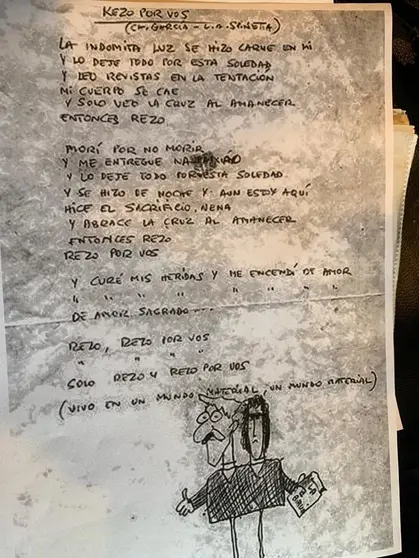 REZO POR VOS
(CH. GARCIA - L.A. SPINETTA)
LA INDOMITA LUZ SE HIZO CARNE EN MI
Y LO DEJE TODO POR ESTA SOLEDAD
Y LEO REVISTAS EN LA TENTACIÓN
MI CUERPO SE CAE
Y SOLO VEO LA CRUZ AL AMANECER
ENTONCES REZO
MORÍ POR NO MORIR
Y ME ENTREGUE
Y LO DEJE TODO POR ESTA SOLEDAD
Y SE HIZO DE NOCHE Y AUN ESTOY AQUÍ
HICE EL SACRIFICIO, NENA
Y ABRACE LA CRUZ AL AMANECER
ENTONCES REZO
REZO POR VOS
Y CURÉ MIS HERIDAS Y ME ENCENDÍ DE AMOR
" " " " " " "
DE AMOR SAGRADO...
REZO, REZO POR VOS
" " "
SOLO REZO Y REZO POR VOS
(VIVO EN UN MUNDO MATERIAL, UN MUNDO MATERIAL)
LA